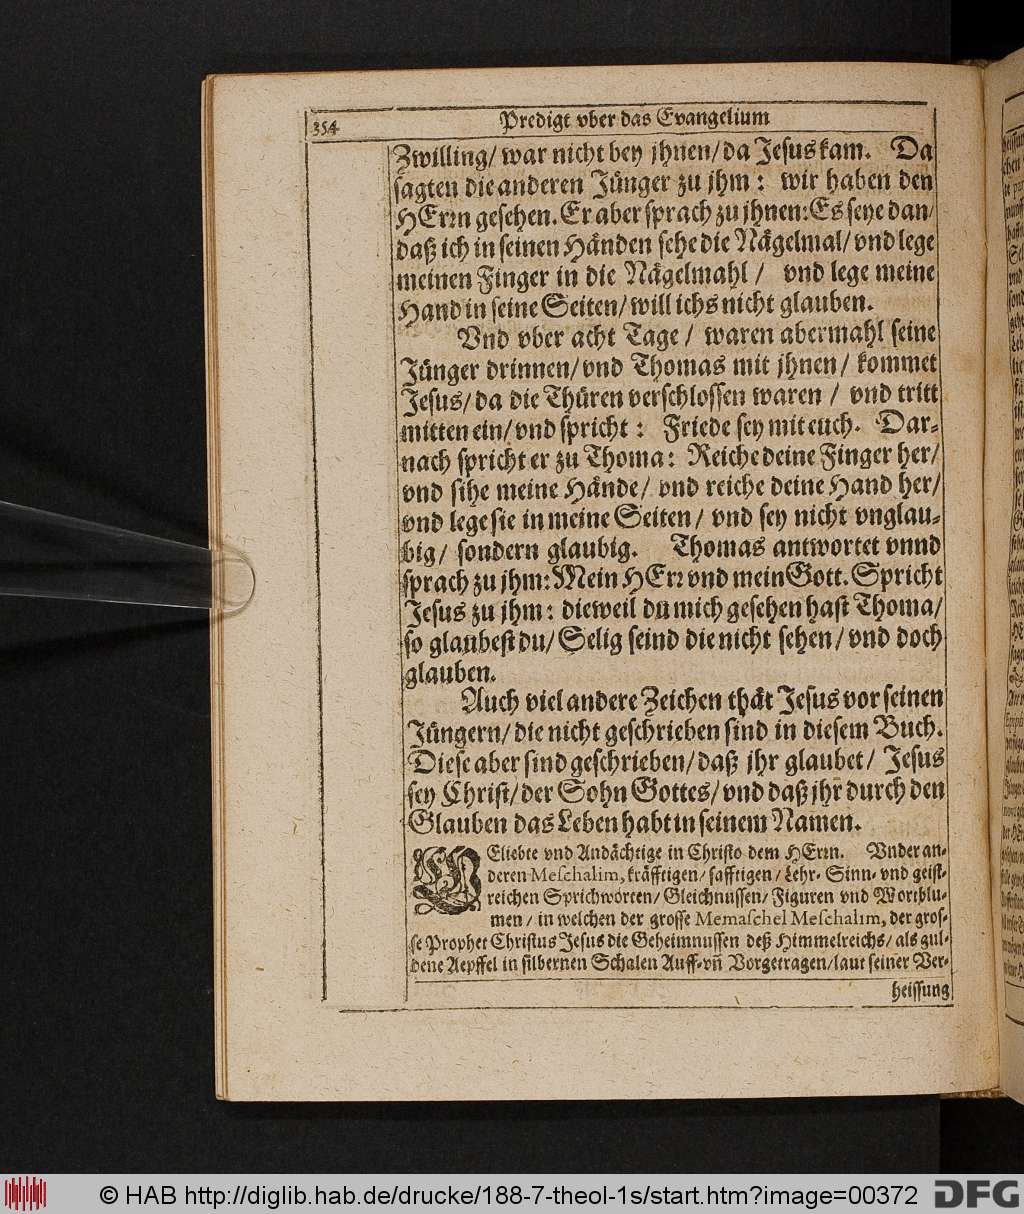 354 Predigt vber das Evangelium
Zwilling/ war nicht bey jhnen/ da Jesus kam. Da
sagten die anderen Jünger zu jhm: wir haben den
HErrn gesehen. Er aber sprach zu jhnen: Es seye dan/
daß ich in seinen Händen sehe die Nägelmal/ vnd lege
meinen Finger in die Nägelmahl / vnd lege meine
Hand in seine Seiten/ will ichs nicht glauben.
Vnd vber acht Tage / waren abermahl seine
Jünger drinnen/ vnd Thomas mit jhnen / kommet
Jesus/ da die Thüren verschlossen waren / vnd tritt
mitten ein/ vnd spricht: Friede sey mit euch. Dar-
nach spricht er zu Thoma: Reiche deine Finger her/
vnd sihe meine Hände/ vnd reiche deine Hand her/
vnd lege sie in meine Seiten / vnd sey nicht vnglau-
big/ sondern glaubig. Thomas antwortet vnnd
sprach zu jhm: Mein HErr vnd mein Gott. Spricht
Jesus zu jhm: dieweil du mich gesehen hast Thoma/
so glaubest du/ Selig seind die nicht sehen/ vnd doch
glauben.
Auch viel andere Zeichen thät Jesus vor seinen
Jüngern/ die nicht geschrieben sind in diesem Buch.
Diese aber sind geschrieben/ daß jhr glaubet/ Jesus
sey Christ/ der Sohn Gottes/ vnd daß jhr durch den
Glauben das Leben habt in seinem Namen.
GEliebte vnd Andächtige in Christo dem HErrn. Vnder an-
deren Meschalim, kräfftigen/ safftigen/ Lehr- Sinn- vnd geist-
reichen Sprichwörten/ Gleichnussen/ Figuren vnd Wortblu-
men / in welchen der grosse Memaschel Meschalim, der gros-
se Prophet Christus Jesus die Geheimnussen deß Himmelreichs/ als gul-
dene Aepffel in silbernen Schalen Auff- vñ Vorgetragen/ laut seiner Ver-
heissung
© HAB http://diglib.hab.de/drucke/188-7-theol-1s/start.htm?image=00372 DFG